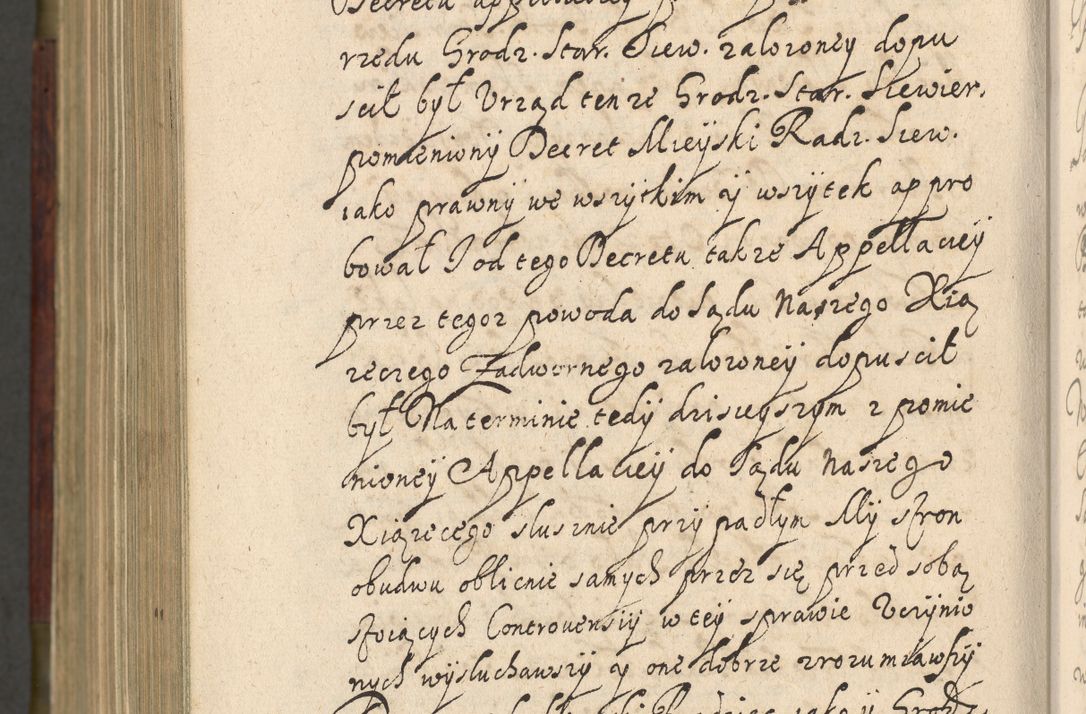 Decretu
rzedu Grodz. Star. Siew. zalozoney dopu
scił był Vrząd tenze Grodz. Star. Siewier.
pomienionÿ Decret Mieÿski Radz. Siew.
iako prawnÿ we wszÿtkim ÿ wszÿtek appro
bował I od tego Decretu takze Appellacieÿ
przez tegoz powoda do Sądu Naszego Xią
zeczego Zadwornego zalozoneÿ dopuscił
był Na terminie tedÿ dzisieyszym z pomie
nioneÿ Appellacieÿ do Sądu naszego
Xiązecego slusznie przÿpadłym Mÿ stron
obudwu oblicnie samych przez się przed sobą
stoiących Controuersiÿ w teÿ sprawie Vczÿnio
nych wÿsluchawszÿ ÿ one dobrze zrozumiawszÿ